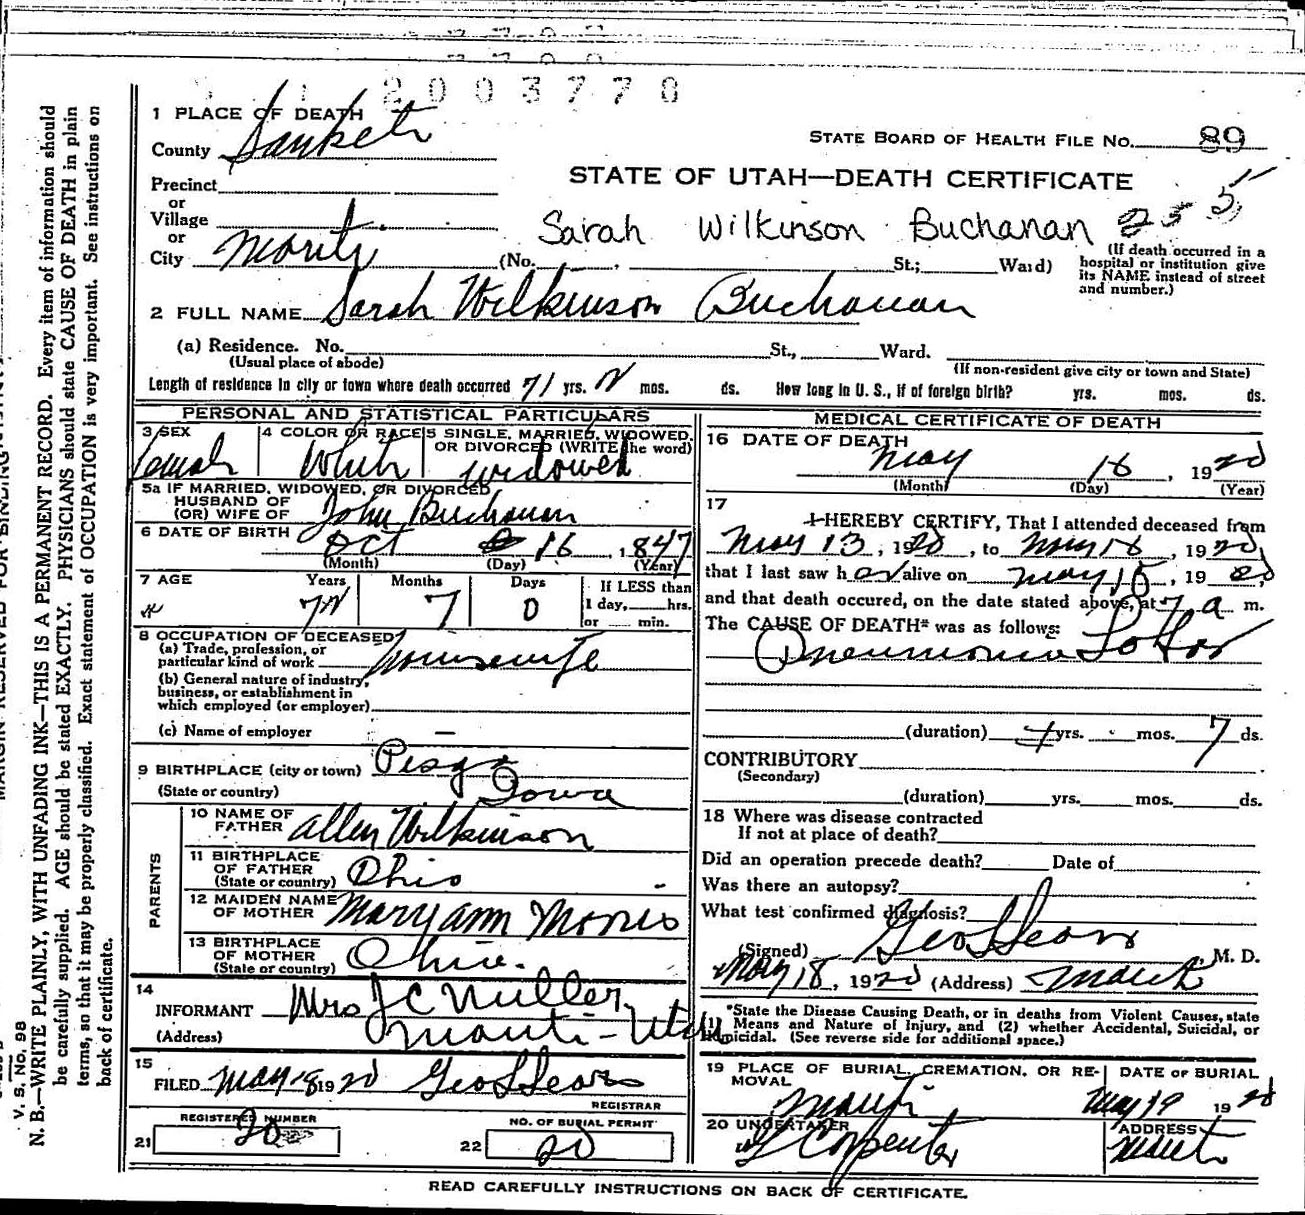 2003770
1 PLACE OF DEATH
County Sanpete
STATE BOARD OF HEALTH FILE No. 89
Precinct
or
Village
or
City Manti
STATE OF UTAH—DEATH CERTIFICATE
Sarah Wilkinson Buchanan 255
(No. , St.; Ward)
(If death occurred in a
hospital or institution give
its NAME instead of street
and number.)
2 FULL NAME Sarah Wilkinson Buchanan
(a) Residence. No. St., Ward.
(Usual place of abode)
(If non-resident give city or town and State)
Length of residence in city or town where death occurred 71 yrs. mos. ds. How long in U. S., if of foreign birth? yrs. mos. ds.
PERSONAL AND STATISTICAL PARTICULARS
3 SEX
Female
4 COLOR OR RACE
White
5 SINGLE, MARRIED, WIDOWED,
OR DIVORCED (WRITE the word)
widowed
5a IF MARRIED, WIDOWED, OR DIVORCED
HUSBAND OF
(OR) WIFE OF John Buchanan
6 DATE OF BIRTH Oct 16, 1847
(Month) (Day) (Year)
7 AGE Years Months Days
7 0
If LESS than
1 day, hrs.
or min.
8 OCCUPATION OF DECEASED
(a) Trade, profession, or
particular kind of work housewife
(b) General nature of industry,
business, or establishment in
which employed (or employer)
(c) Name of employer —
9 BIRTHPLACE (city or town) Pisga
(State or country) Iowa
PARENTS
10 NAME OF
FATHER Allen Wilkinson
11 BIRTHPLACE
OF FATHER
(State or country) Ohio
12 MAIDEN NAME
OF MOTHER Mary ann Morris
13 BIRTHPLACE
OF MOTHER
(State or country) Ohio.
14
INFORMANT Mrs J C Nuller
(Address) Manti - Utah
15
FILED May-18 1920 Geo L Sears
REGISTRAR
REGISTERED NUMBER
21 20
NO. OF BURIAL PERMIT
22 20
MEDICAL CERTIFICATE OF DEATH
16 DATE OF DEATH
May 16, 1920
(Month) (Day) (Year)
17
I HEREBY CERTIFY, That I attended deceased from
May 13, 1920, to May 16, 1920,
that I last saw her alive on May 15, 1920,
and that death occured, on the date stated above, at 7 a m.
The CAUSE OF DEATH* was as follows:
Pneumonia Lobar
(duration) yrs. mos. 7 ds.
CONTRIBUTORY
(Secondary)
(duration) yrs. mos. ds.
18 Where was disease contracted
If not at place of death?
Did an operation precede death? Date of
Was there an autopsy?
What test confirmed diagnosis?
(Signed) Geo L Sears, M. D.
May 18, 1920 (Address) Manti
*State the Disease Causing Death, or in deaths from Violent Causes, state
(1) Means and Nature of Injury, and (2) whether Accidental, Suicidal, or
Homicidal. (See reverse side for additional space.)
19 PLACE OF BURIAL, CREMATION, OR RE-
MOVAL
Manti
DATE OF BURIAL
May 19 1920
20 UNDERTAKER
Carpenter
ADDRESS
Manti
READ CAREFULLY INSTRUCTIONS ON BACK OF CERTIFICATE.
MARGIN RESERVED FOR BINDING
V. S. No. 98
N. B.—WRITE PLAINLY, WITH UNFADING INK—THIS IS A PERMANENT RECORD. Every item of information should
be carefully supplied. AGE should be stated EXACTLY. PHYSICIANS should state CAUSE OF DEATH in plain
terms, so that it may be properly classified. Exact statement of OCCUPATION is very important. See instructions on
back of certificate.